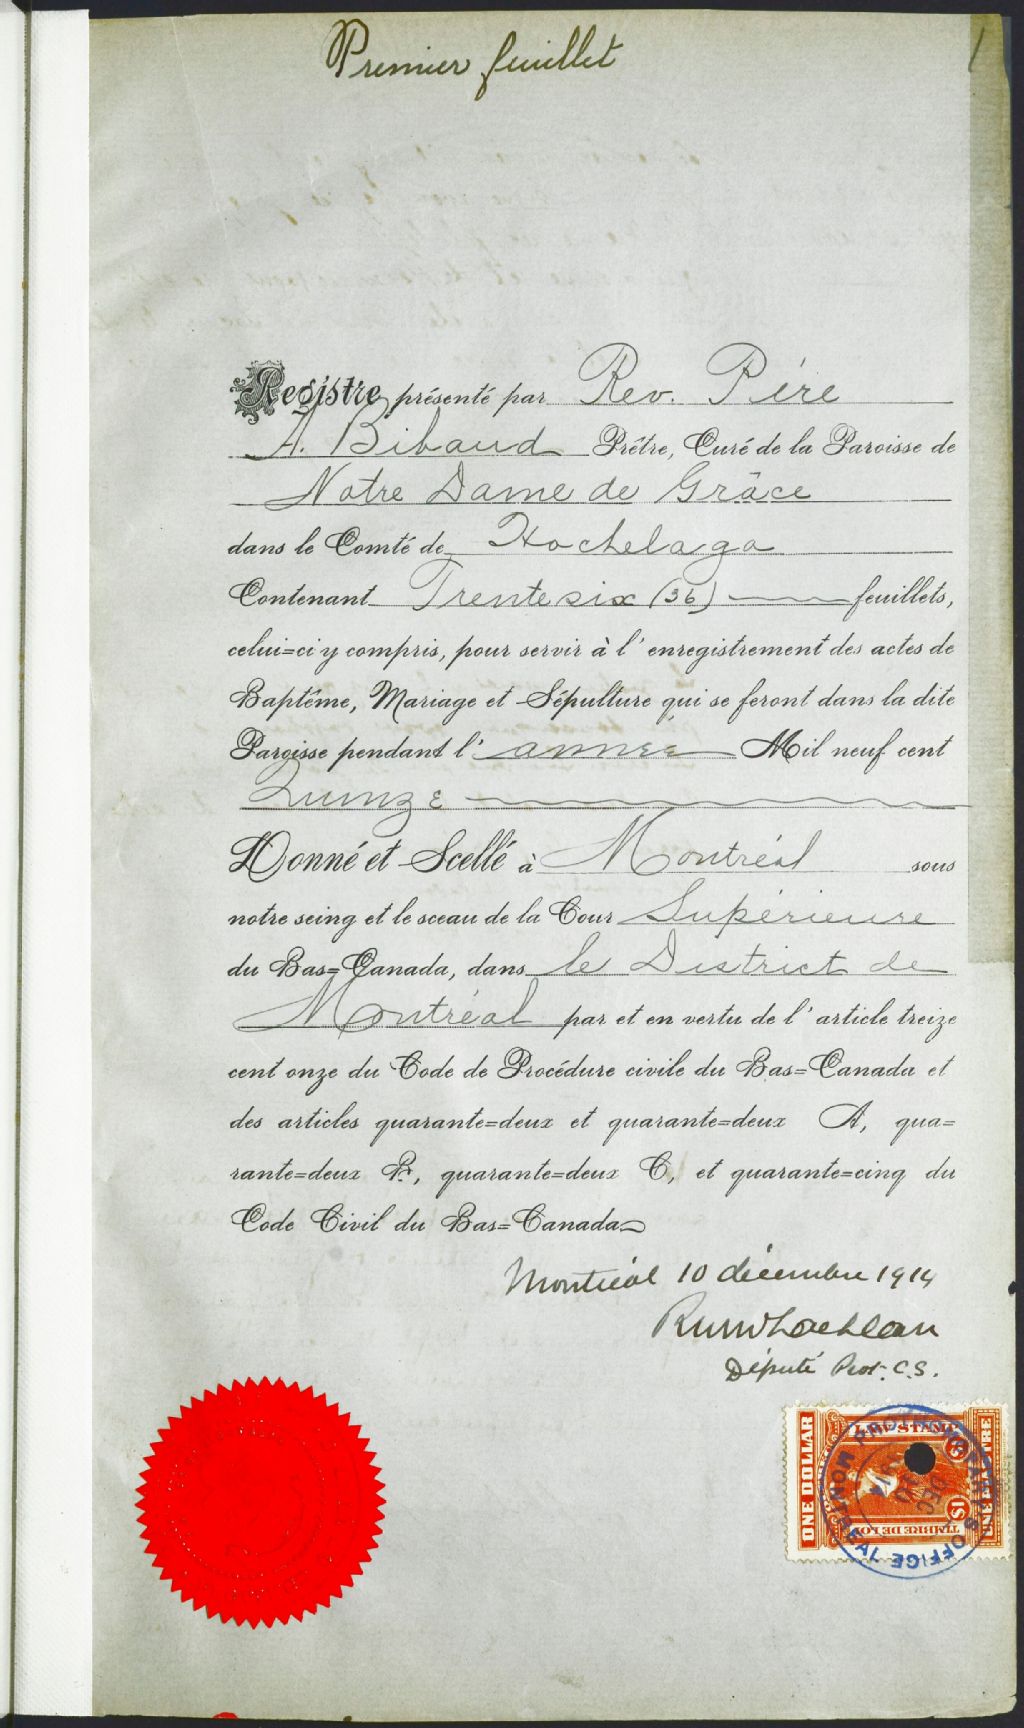 Premier feuillet
1
Registre présenté par Rev. Père
A. Bibaud Prêtre, Curé de la Paroisse de
Notre Dame de Grâce
dans le Comté de Hochelaga
Contenant Trente six (36) feuillets,
celui=ci y compris, pour servir à l'enregistrement des actes de
Baptême, Mariage et Sépulture qui se feront dans la dite
Paroisse pendant l'année Mil neuf cent
Quinze
Donné et Scellé à Montréal sous
notre seing et le sceau de la Cour Supérieure
du Bas=Canada, dans le District de
Montréal par et en vertu de l'article treize
cent onze du Code de Procédure civile du Bas=Canada et
des articles quarante=deux et quarante=deux A, qua=
rante=deux B, quarante=deux C, et quarante=cinq du
Code Civil du Bas=Canada
Montréal 10 décembre 1914
Député Prot. C.S.
ONE DOLLAR
LAW STAMP
$1
$1
TIMBRE DE LOI
PROTHONOTARY'S OFFICE MONTREAL
DEC
10
1914